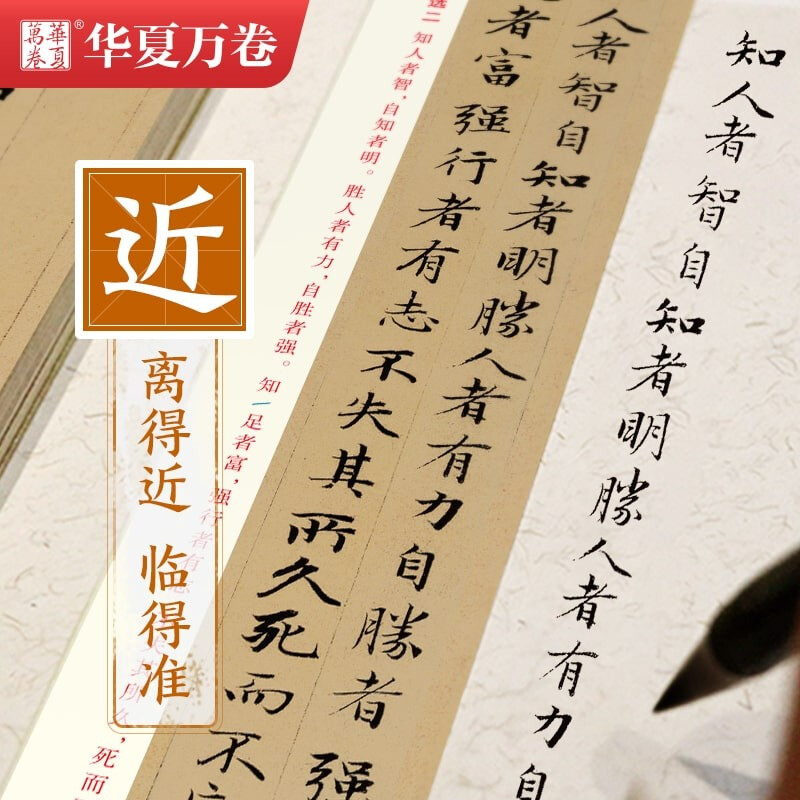 華夏
萬卷
®
华夏万卷
近
离得近 临得准
知人者智自知者明勝人者有力自
人者智自知者明勝人者有力自勝者强
者富强行者有志不失其所久死而不
选二 知人者智，自知者明。胜人者有力，自胜者强。知足者富，强行者有志
死而